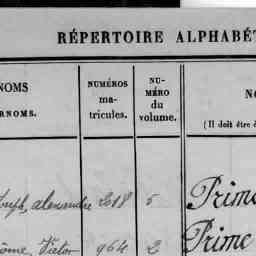 RÉPERTOIRE ALPHABÉT
NOMS
NUMÉROS
ma-
tricules.
NU-
MÉRO
du
volume.
NO
RNOMS.
(Il doit être é
oseph, alexandre 2018 5 Prime
ôme, Victor 964 2 Prime